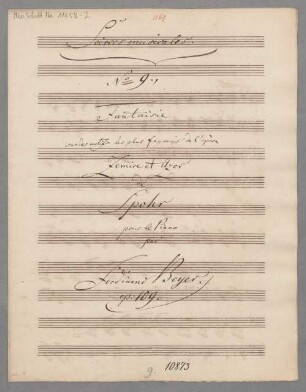 Mus. Schott Ha 11058-2
Soirées musicales.
No. 9.
Fantaisie
sur des motifs les plus favoris de l'opéra
Zemire et Azor
de
Spohr
pour le Piano
par
Ferdinand Beyer.
op. 109.
9. 10873